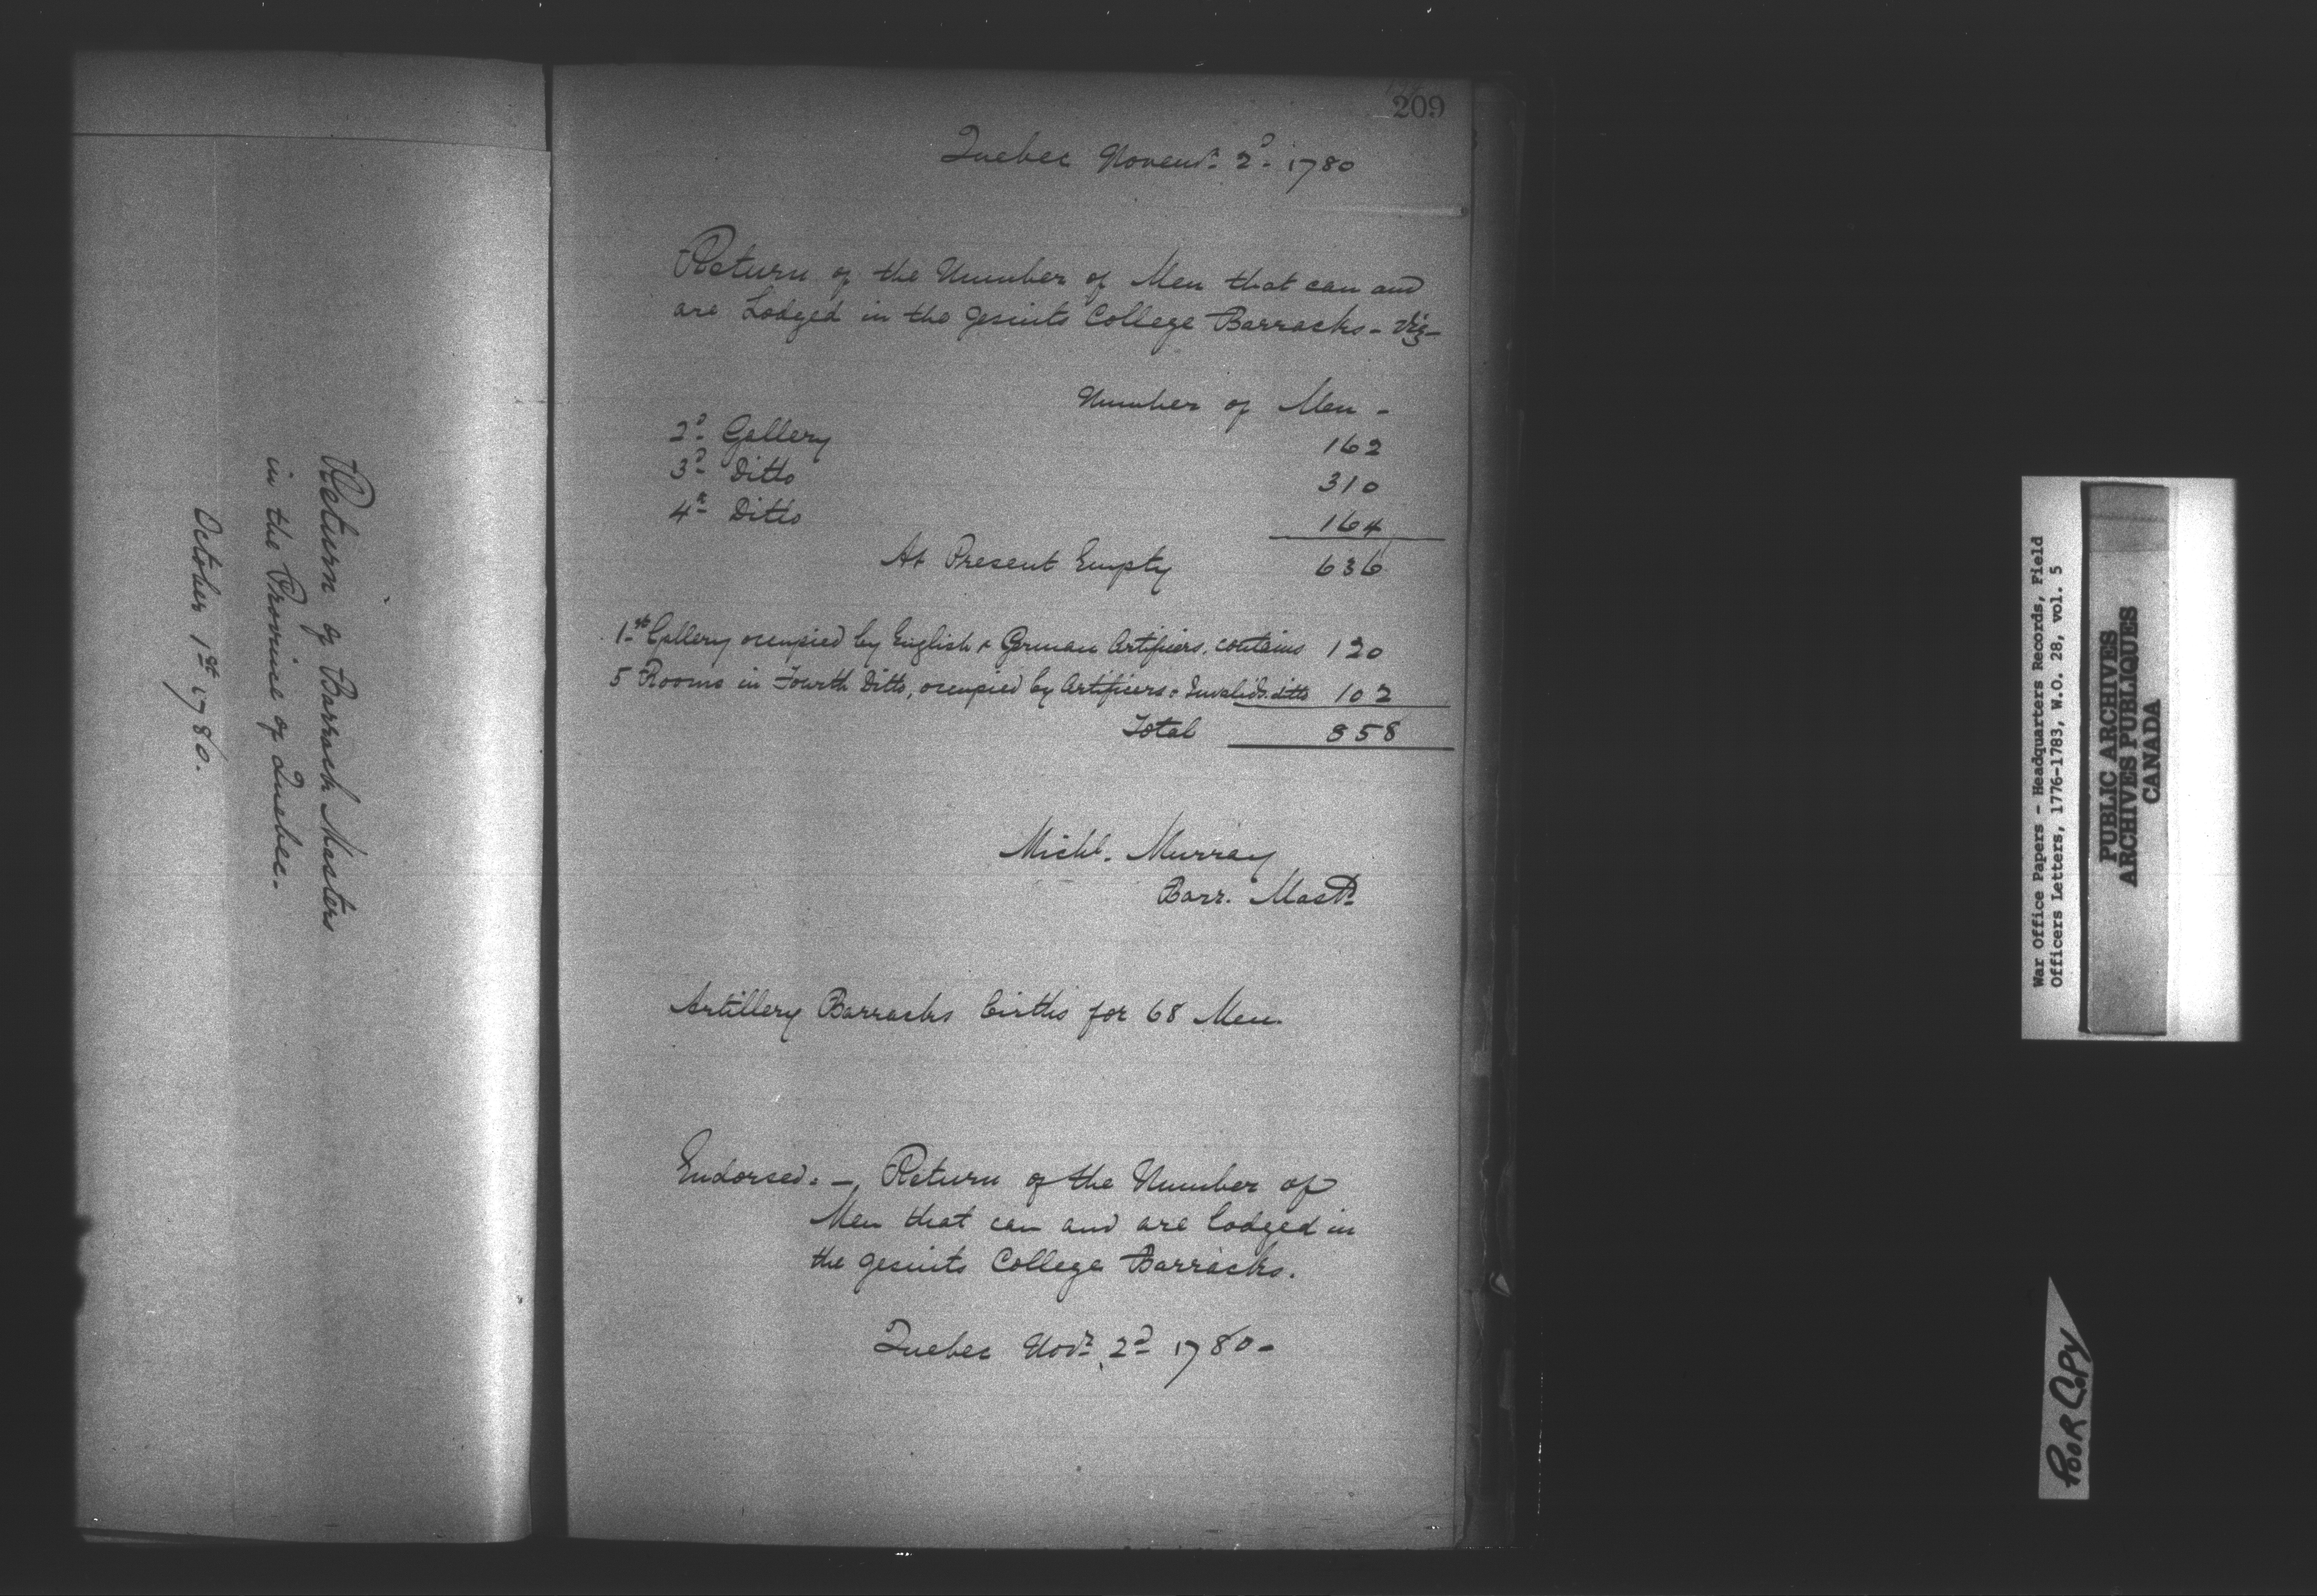 Return of Barrack Masters
in the Province of Quebec.
October 1st 1780.
209
Quebec Novemr. 2d. 1780
Return of the Number of Men that can and
are Lodged in the Jesuits College Barracks - Viz -
Number of Men -
2d. Gallery 162
3d. Ditto 310
4th. Ditto 164
At Present Empty 636
1st. Gallery occupied by English & German Artifiers, contains 120
5 Rooms in Fourth Ditto, occupied by Artificers & Invalids. ditto 102
Total 858
Michl. Murray
Barr. Mastr.
Artillery Barracks births for 68 Men.
Endorsed. - Return of the Number of
Men that can and are lodged in
the Jesuits College Barracks.
Quebec Novr. 2d 1780 -
War Office Papers - Headquarters Records, Field
Officers Letters, 1776-1783, W.O. 28, vol. 5
PUBLIC ARCHIVES
ARCHIVES PUBLIQUES
CANADA
POOR COPY